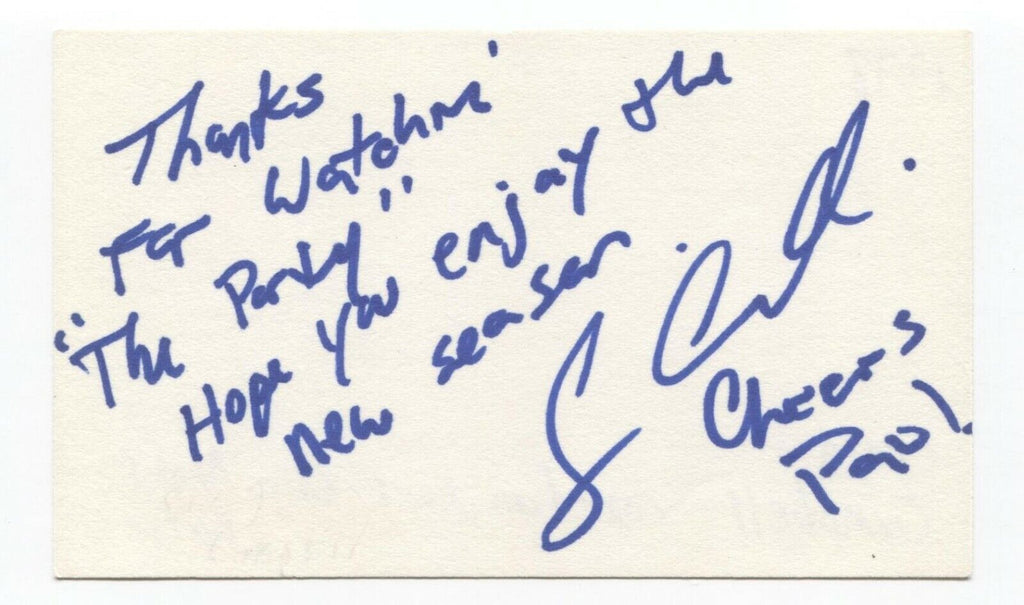 Thanks
For Watchin'
"The Party"
Hope you enjoy the
new season
Cheers
Paul!